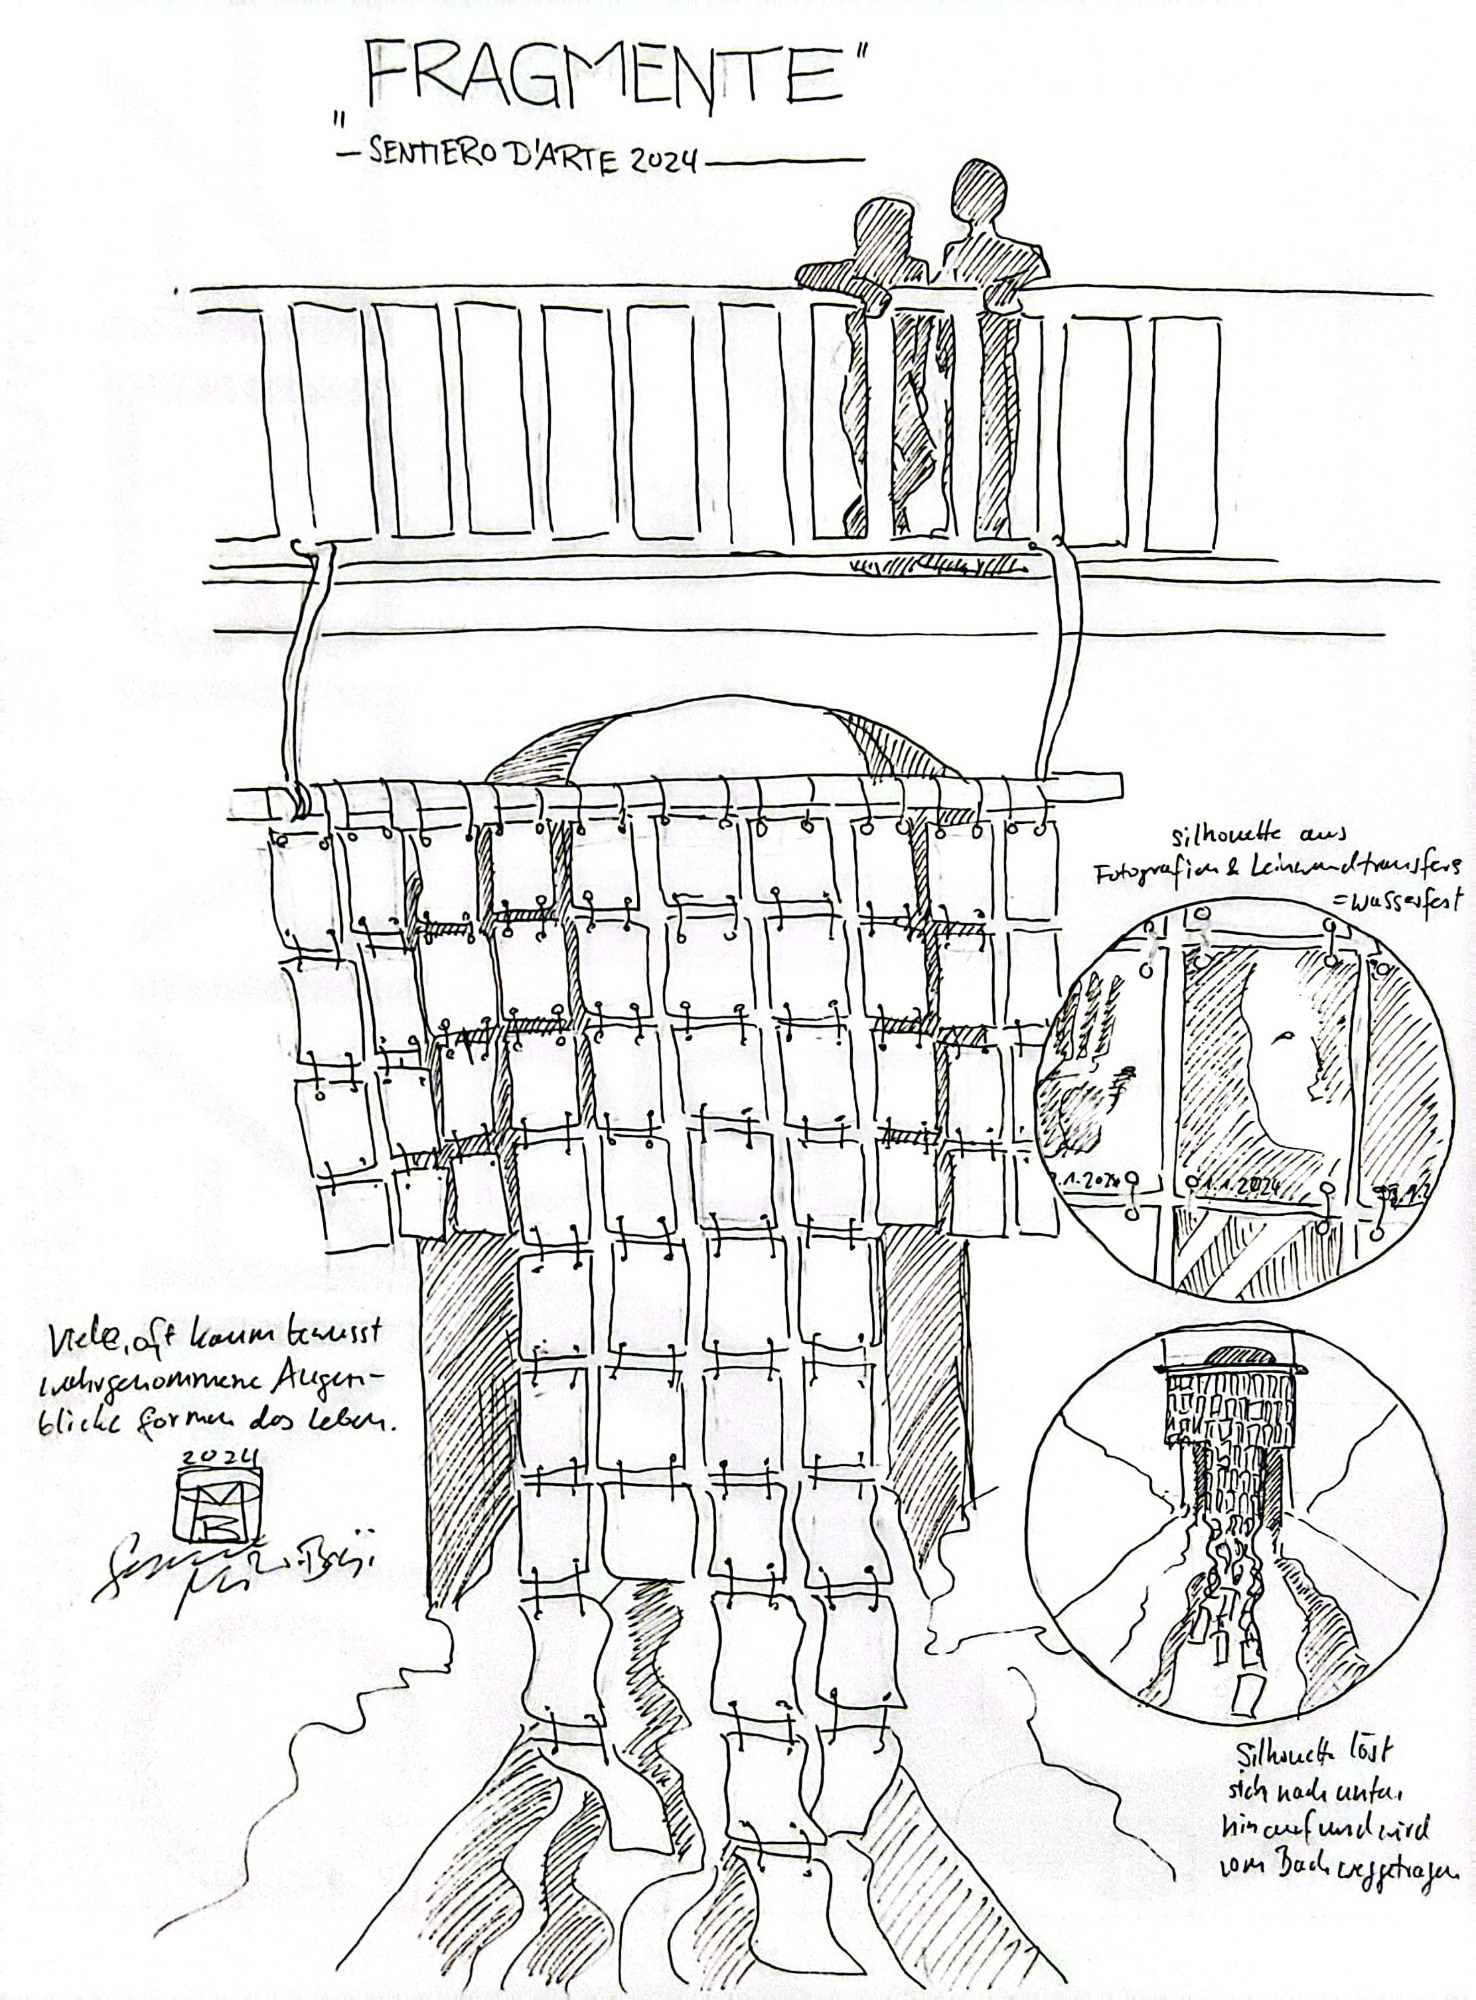 „FRAGMENTE"
– SENTIERO D'ARTE 2024 –
Silhouette aus
Fotografien & Leinwandtransfers
= wasserfest
.1.2024
1.1.2024
Viele, oft kaum bewusst
wahrgenommene Augen-
blicke formen das Leben.
2024
MB
Silhouette löst
sich nach unten
hin auf und wird
vom Bach weggetragen